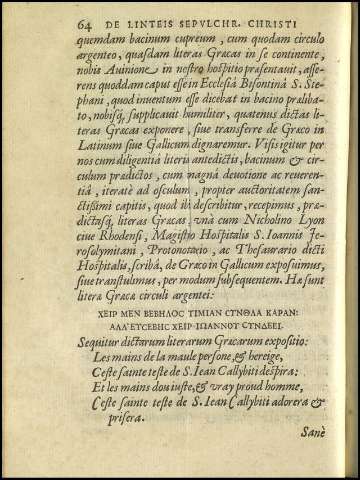 64 DE LINTEIS SEPVLCHR. CHRISTI
quemdam bacinum cupreum, cum quodam circulo
argenteo, quasdam literas Græcas in se continente,
nobis Auinione in nostro hospitio præsentauit, asse-
rens quoddam caput esse in Ecclesiâ Bisontinâ S. Ste-
phani, quod inuentum esse dicebat in bacino præliba-
to, nobisq́, supplicauit humiliter, quatenus dictas li-
teras Græcas exponere, siue transferre de Græco in
Latinum siue Gallicum dignaremur. Visis igitur per
nos cum diligentiâ literis antedictis, bacinum & cir-
culum prædictos, cum magnâ deuotione ac reueren-
tiâ, iteratè ad osculum, propter auctoritatem san-
ctissimi capitis, quod ibi describitur, recepimus, præ-
dictasq́, literas Græcas, vnà cum Nicholino Lyon
ciue Rhodensi, Magistro Hospitalis S. Ioannis Je-
rosolymitani, Protonotario, ac Thesaurario dicti
Hospitalis, scribâ, de Græco in Gallicum exposuimus,
siue transtulimus, per modum subsequentem. Hæ sunt
literæ Græcæ circuli argentei:
ΧΕΙΡ ΜΕΝ ΒΕΒΗΛΟC ΤΙΜΙΑΝ CΥΝΘΛΑ ΚΑΡΑΝ:
ΑΛΛ' ΕΥCΕΒΗC ΧΕΙΡ ΙΩΑΝΝΟΥ CΥΝΔΕΕΙ.
Sequitur dictarum literarum Græcarum expositio:
Les mains de la maule persone, & hereige,
Ceste sainte teste de S. Iean Callybiti despira:
Et les mains dou iuste, & vray proud homme,
Ceste sainte teste de S. Iean Callybiti adorera &
prisera.
Sanè